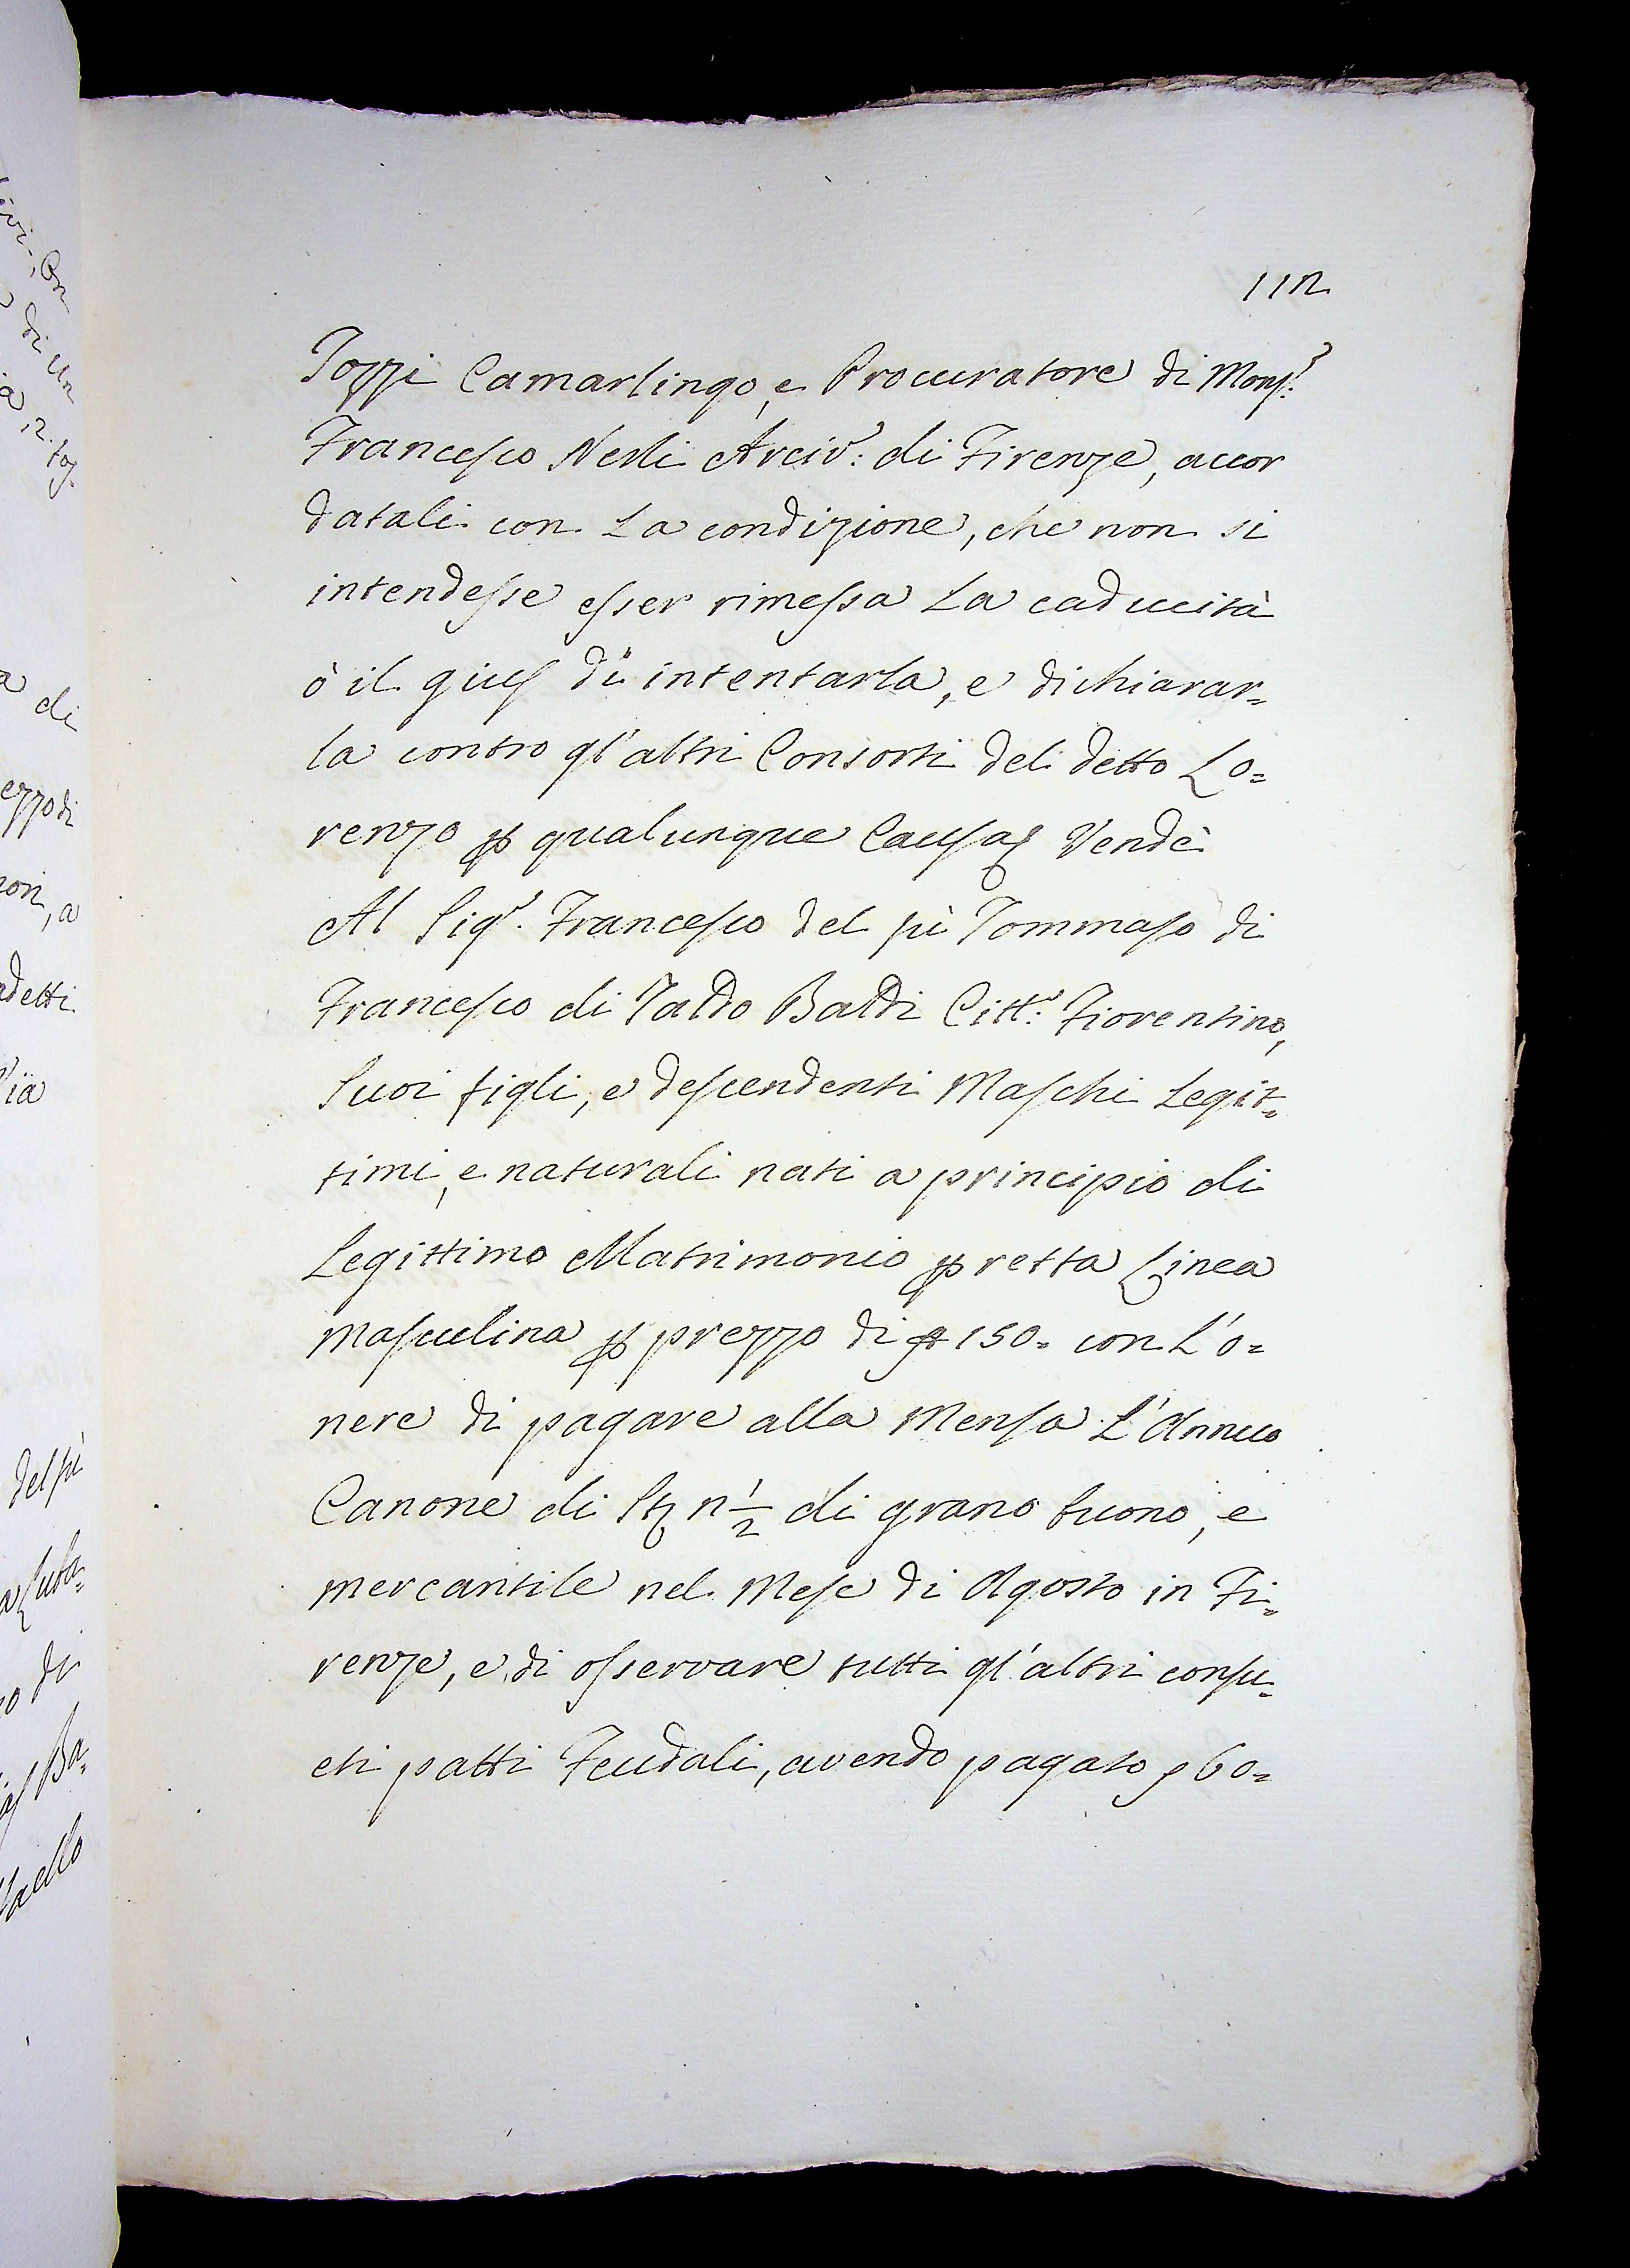 112
Tozzi Camarlingo, e Procuratore di Mons.r
Francesco Nerli Arciv.o: di Firenze, accor
datali con La condizione, che non si
intendesse esser rimessa La caducità
ò il gius di intentarla, e dichiarar=
la contro gl'altri Consorti del detto Lo=
renzo p qualunque Causa, Vendè
Al Sig.r Francesco del fù Tommaso di
Francesco di Taddo Baldi Citt.o: Fiorentino,
Suoi figli, e descendenti Maschi Legit=
timi, e naturali nati a principio di
Legittimo Matrimonio p retta Linea
Masculina p prezzo di 150= con L'o=
nere di pagare alla Mensa L'Annuo
Canone di St 1/2 di grano buono, e
mercantile nel Mese di Agosto in Fi=
renze, e di osservare tutti gl'altri consu=
eti patti Feudali, avendo pagato p 60=
del fù
di
ezzo di
adetti